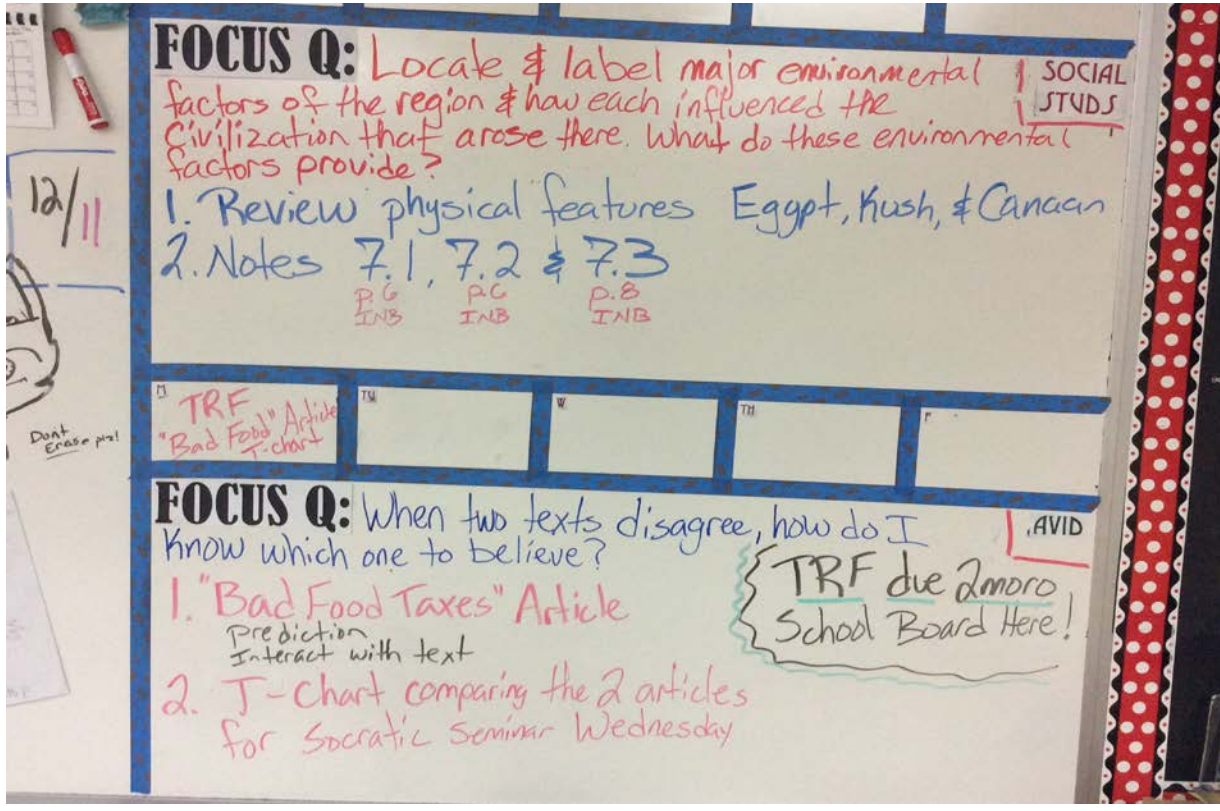 FOCUS Q: Locate & label major environmental
factors of the region & how each influenced the
Civilization that arose there. What do these environmental
factors provide?
SOCIAL
STUDS
1. Review physical features Egypt, Kush, & Canaan
2. Notes 7.1, 7.2 & 7.3
p.6 p.6 p.8
INB INB INB
12/11
Dont
Erase plz!
M
TRF
"Bad Food" Article
T-chart
TU
W
TH
F
FOCUS Q: When two texts disagree, how do I
know which one to believe?
AVID
1. "Bad Food Taxes" Article
prediction
Interact with text
2. T-Chart comparing the 2 articles
for Socratic Seminar Wednesday
TRF due 2moro
School Board Here!